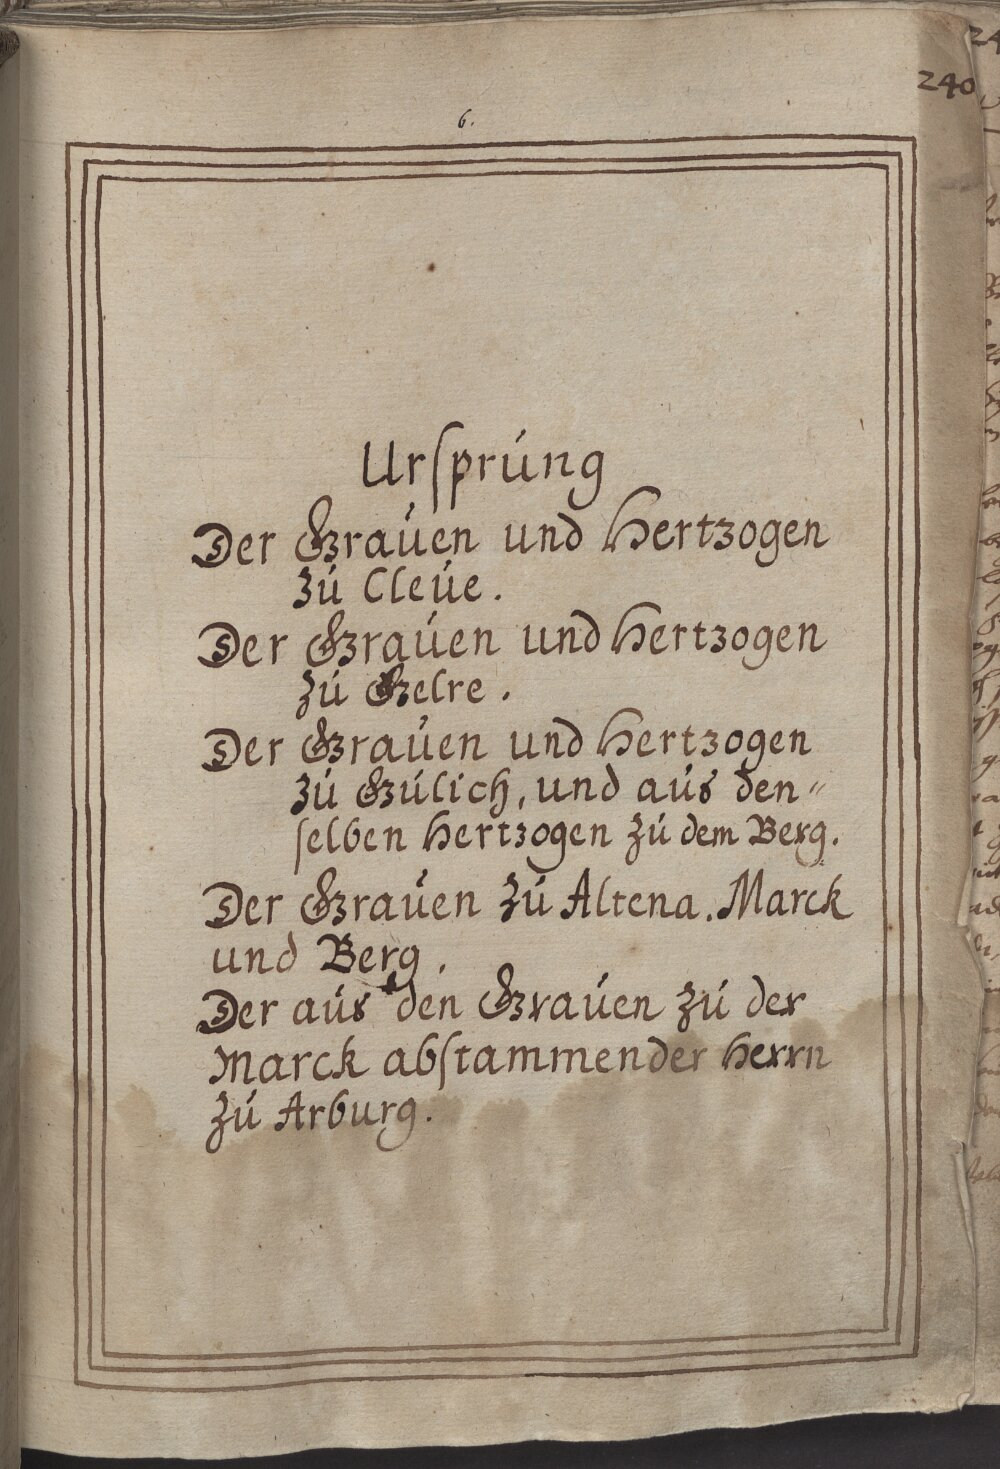 240
6.
Urſprúng
Der Graúen und Hertzogen
zú Cleúe.
Der Graúen und Hertzogen
zú Gelre.
Der Graúen und Hertzogen
zú Gúlich, und aús den„
ſelben Hertzogen zú dem Berg.
Der Graúen zú Altena. Marck
und Berg.
Der aús den Graúen zú der
Marck abſtammender Herrn
zú Arburg.